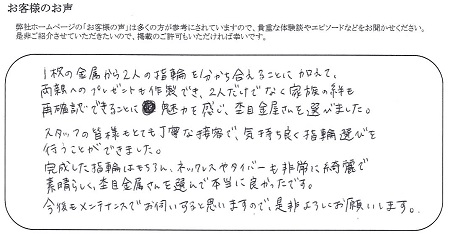 お客様のお声
弊社ホームページの「お客様の声」は多くの方が参考にされていますので、貴重な体験談やエピソードなどをお聞かせください。
是非ご紹介させていただきたいので、掲載のご許可もいただければ幸いです。
1枚の金属から2人の指輪を分かち合えることに加えて、
両親へのプレゼントも作製でき、2人だけでなく家族の絆も
再確認できることに魅力を感じ、杢目金屋さんを選びました。
スタッフの皆様もとても丁寧な接客で、気持ち良く指輪選びを
行うことができました。
完成した指輪はもちろん、ネックレスやタイバーも非常に綺麗で
素晴らしく、杢目金屋さんを選んで本当に良かったです。
今後もメンテナンスでお伺いすると思いますので、是非よろしくお願いします。